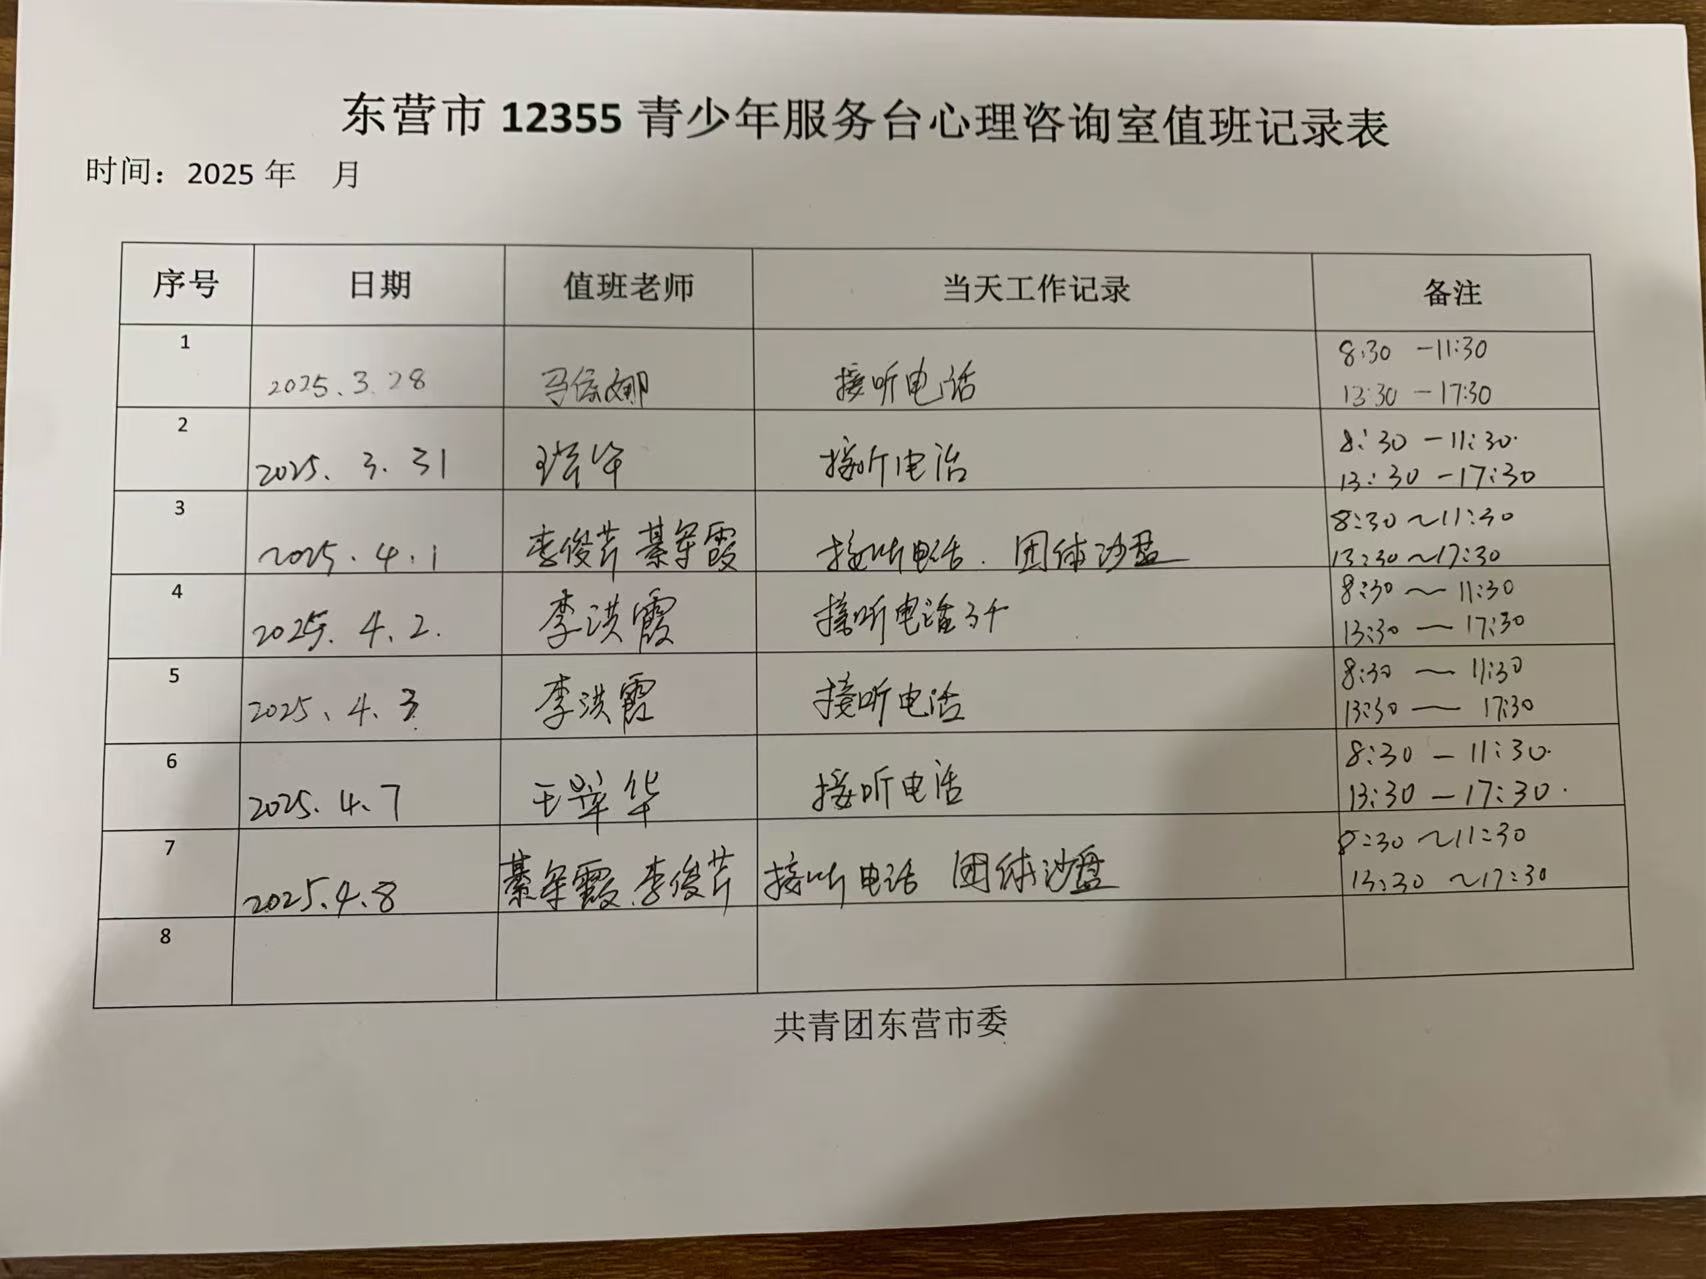 东营市 12355 青少年服务台心理咨询室值班记录表
时间：2025 年 月
序号 日期 值班老师 当天工作记录 备注
1 2025.3.28 接听电话 8:30 -11:30
13:30 -17:30
2 2025.3.31 接听电话 8:30 -11:30
13:30 -17:30
3 2025.4.1 李俊芹 綦军霞 接听电话. 团体沙盘 8:30~11:30
13:30~17:30
4 2025.4.2. 李洪霞 接听电话 8:30 — 11:30
13:30 — 17:30
5 2025.4.3 李洪霞 接听电话 8:30 — 11:30
13:30 — 17:30
6 2025.4.7 王 华 接听电话 8:30 - 11:30
13:30 - 17:30
7 2025.4.8 綦军霞.李俊芹 接听电话 团体沙盘 8:30~11:30
13:30~17:30
8
共青团东营市委